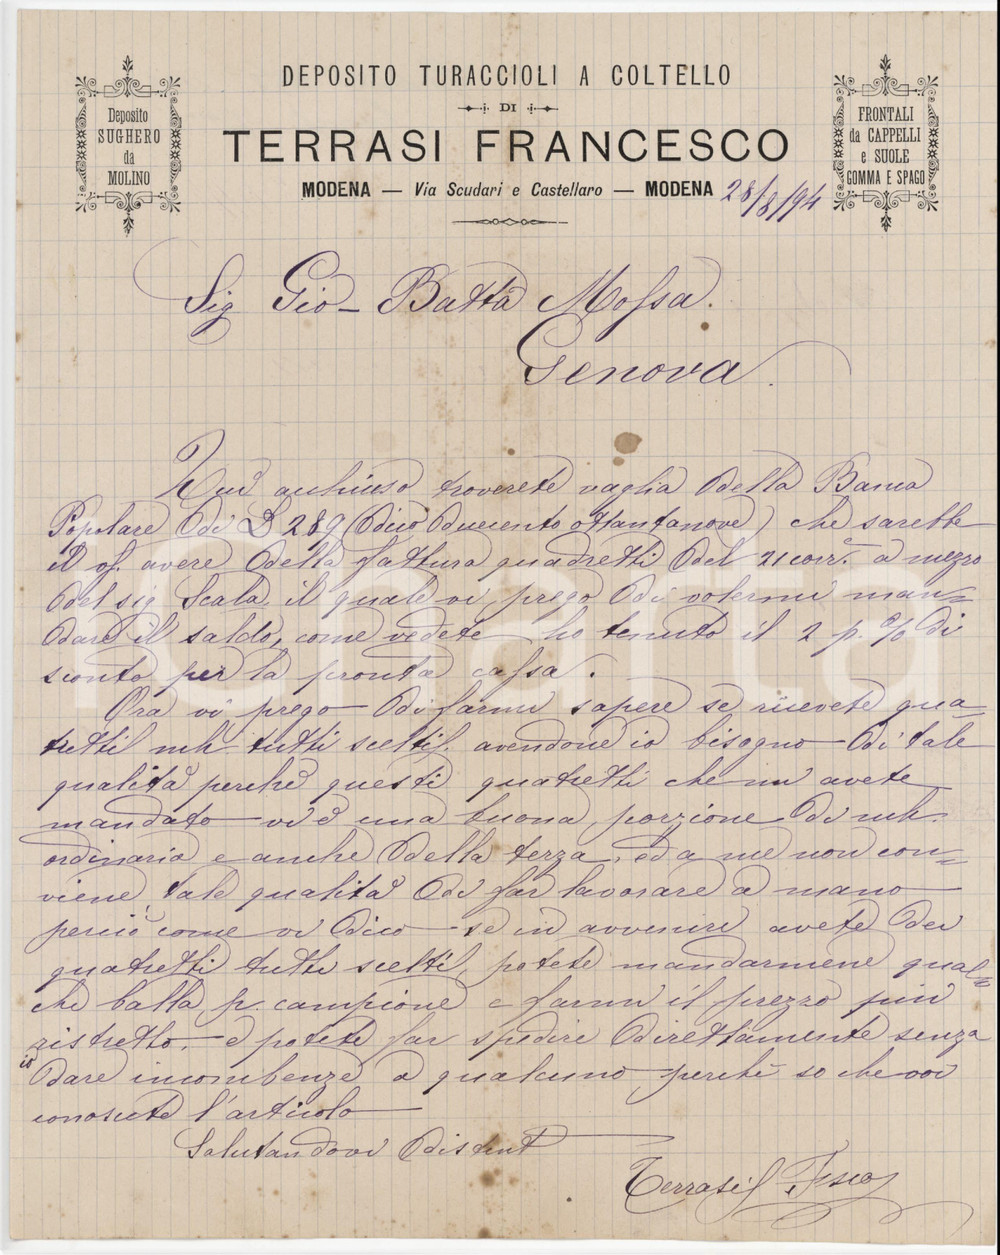 DEPOSITO TURACCIOLI A COLTELLO
DI
TERRASI FRANCESCO
MODENA — Via Scudari e Castellaro — MODENA 28/8/94
Deposito
SUGHERO
da
MOLINO
FRONTALI
da CAPPELLI
e SUOLE
GOMMA E SPAGO
Sig Gio- Batta Mossa.
Genova.
Qui acchiuso troverete vaglia della Banca
Popolare di L 289 (dico duecento ottantanove) che sarebbe
il vs. avere della fattura quadretti del 21 corr. a mezzo
del sig Scala, il quale vi prego di volermi man=
dare il saldo, come vedete ho tenuto il 2 p. % di
sconto per la pronta cassa.
Ora vi prego di farmi sapere se ricevete qua=
tretti tutti scelti, avendone io bisogno di tale
qualità perchè questi quatretti che mi avete
mandato vi è una buona porzione di
ordinaria e anche della terza, ed a me non con=
viene, tale qualità di far lavorare a mano
perciò come vi dico se in avvenire avete dei
quatretti tutti scelti, potete mandarmene qual=
che balla p. campione e farmi il prezzo più
ristretto, e potete far spedire direttamente senza
io dare incombenze a qualcuno perchè so che voi
conoscete l'articolo
Salutandovi distint
Terrasi Fsco
Charta